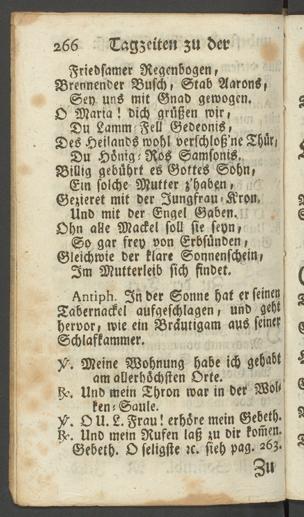 266 Tagzeiten zu der
Friedsamer Regenbogen,
Brennender Busch, Stab Aarons,
Sey uns mit Gnad gewogen.
O Maria! dich grüßen wir,
Du Lamm-Fell Gedeonis,
Des Heilands wohl verschloß'ne Thür,
Du Hönig-Ros Samsonis.
Billig gebührt es Gottes Sohn,
Ein solche Mutter z'haben,
Gezieret mit der Jungfrau-Kron,
Und mit der Engel Gaben.
Ohn alle Mackel soll sie seyn,
So gar frey von Erbsünden,
Gleichwie der klare Sonnenschein,
Im Mutterleib sich findet.
Antiph. In der Sonne hat er seinen
Tabernackel aufgeschlagen, und geht
hervor, wie ein Bräutigam aus seiner
Schlafkammer.
℣. Meine Wohnung habe ich gehabt
am allerhöchsten Orte.
℟. Und mein Thron war in der Wol-
ken-Saule.
℣. O U. L. Frau! erhöre mein Gebeth.
℟. Und mein Rufen laß zu dir kom̄en.
Gebeth. O seligste ꝛc. sieh pag. 263.
Zu